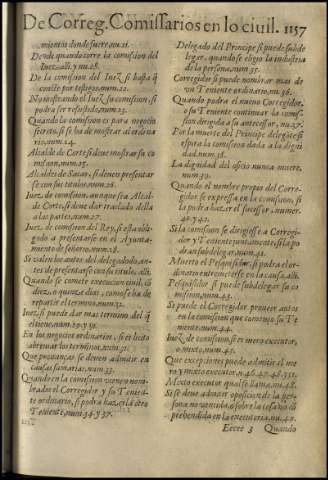 De Correg. Comissarios en lo ciuil. 1157
miento donde fuere, nu. 21.
Desde quando corre la comission del
Iuez. alli. y nu. 28.
De la comission del Iuez si basta q
conste por testigos, num. 22.
No mostrando el Iuez su comission, si
podra ser resistido, num. 23.
Quando la comission es para negocio
secreto, si se ha de mostrar al ordina
rio, num. 24.
Alcalde de Corte si deue mostrar su co
mission, num. 25.
Alcaldes de Sacas, si deuen presentar
se con sus titulos, num. 26.
Iuez de comission, aunque sea Alcal-
de Corte, si deue dar traslado della
a las partes, num. 27.
Iuez de comission del Rey, si està obli
gado a presentarse en el Ayunta-
miento de señorio, num. 28.
Si valen los autos del delegado do, an
tes de presentarse con su titulo. alli.
Quando se comete execucion ciuil, ò
diez, o quinze dias, como se ha de
repartir el termino, num. 32.
Iuez, si puede dar mas termino del q
el tiene, nu. 29. y 30.
En los negocios ordinarios, si es licito
abreuiar los terminos, num. 35.
Que prouanças se deuen admitir en
causas sumarias, num. 33.
Quando en la comission vienen nom-
brados el Corregidor y su Tenien-
te ordinario, si podra hazerla otro
Teniente, num. 34. y 37.
1157
Delegado del Principe si puede subde
legar, quando se eligio la industria
de la persona, num. 35.
Corregidor si puede nombrar mas de
vn Teniente ordinario, nu. 36.
Quando podra el nueuo Corregidor,
o su Teniente continuar la comis-
sion dirigida a su antecessor, nu. 37.
Por la muerte del Principe delegãte si
espira la comission dada a la digni
dad, num. 38.
La dignidad del oficio nunca muere,
num. 39.
Quando el nombre propio del Corre-
gidor se expressa en la comission, si
la podra hazer el sucessor, numer.
40. y 42.
Si la comission se dirigiesse a Corregi-
dor y Teniente juntamente, si la po
dran subdelegar, num. 41.
Muerto el Pesquisidor, si podra el or-
dinario entremeterse en la causa. alli.
Pesquisidor si puede subdelegar su co
mission, num. 43.
Si puede el Corregidor proueer autos
en la comission que cometio su Te
niente, num. 44.
Iuez de comission, si es mero executor,
o mixto, num. 45.
Que excepciones puede admitir el me
ro y mixto executor, n. 46. 47. 48. 55.
Mixto executor qual se llama, nu. 48.
Si se deue admitir oposicion de la per-
sona no vencida, o sobre la cosa no cõ
prehendida en la executoria, nu. 49.
Eeee 3 Quando